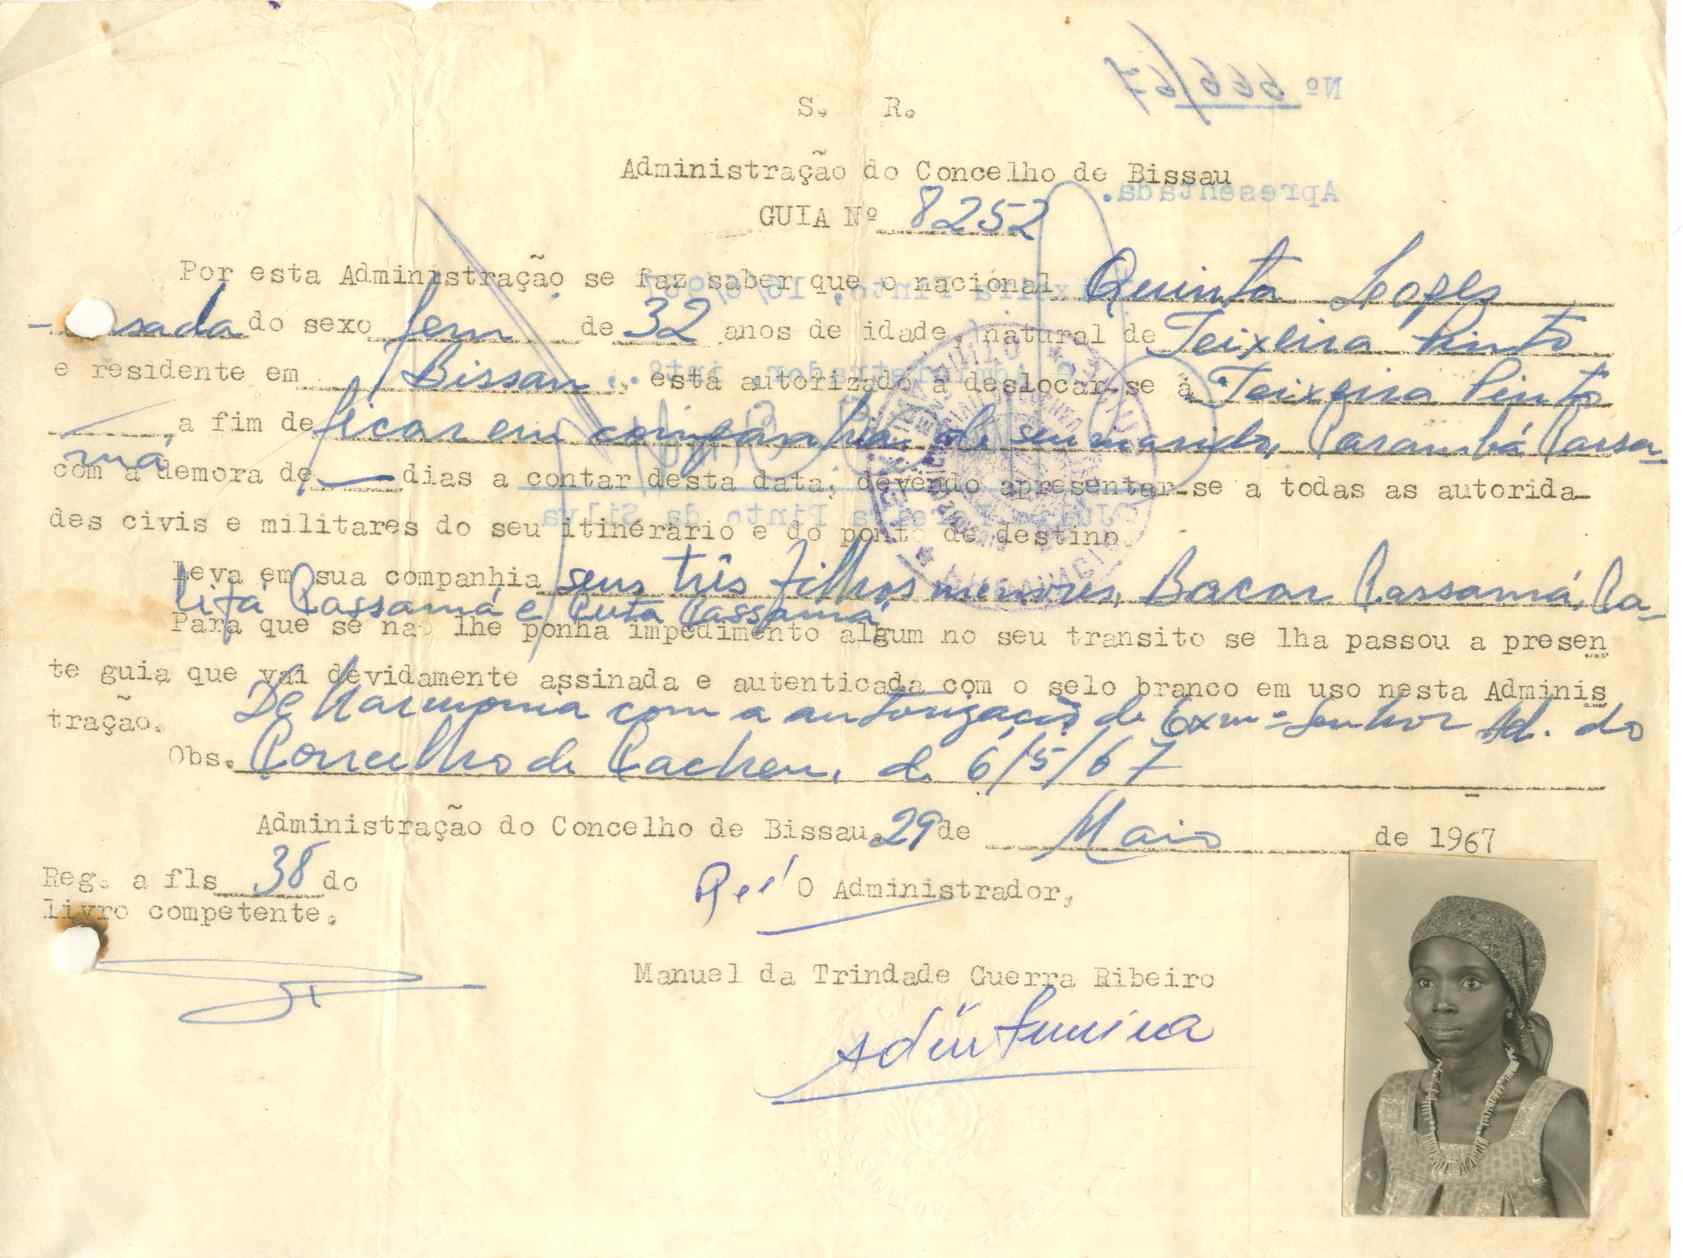 Nº 566/67
S. R.
Administração do Concelho de Bissau
Apresentada.
GUIA Nº 8252
Por esta Administração se faz saber que o nacional Quinta Lopes
casada do sexo fem de 32 anos de idade, natural de Teixeira Pinto
e residente em Bissau, está autorizado a deslocar-se à Teixeira Pinto
, a fim de ficar em companhia de seu marido, Carambá Cassa-
má
com a demora de — dias a contar desta data, devendo apresentar-se a todas as autorida-
des civis e militares do seu itinerário e do ponto de destino.
Leva em sua companhia seus três filhos menores, Bacar Cassamá, Ca-
lifá Cassamá e Cuta Cassamá
Para que se não lhe ponha impedimento algum no seu transito se lha passou a presen
te guia que vai devidamente assinada e autenticada com o selo branco em uso nesta Adminis
tração. De harmonia com a autorização de Exmº Senhor Ad. do
Obs. Concelho de Cacheu, de 6/5/67
Administração do Concelho de Bissau, 29 de Maio de 1967
Reg. a fls 38 do
livro competente.
O Administrador,
Manuel da Trindade Guerra Ribeiro